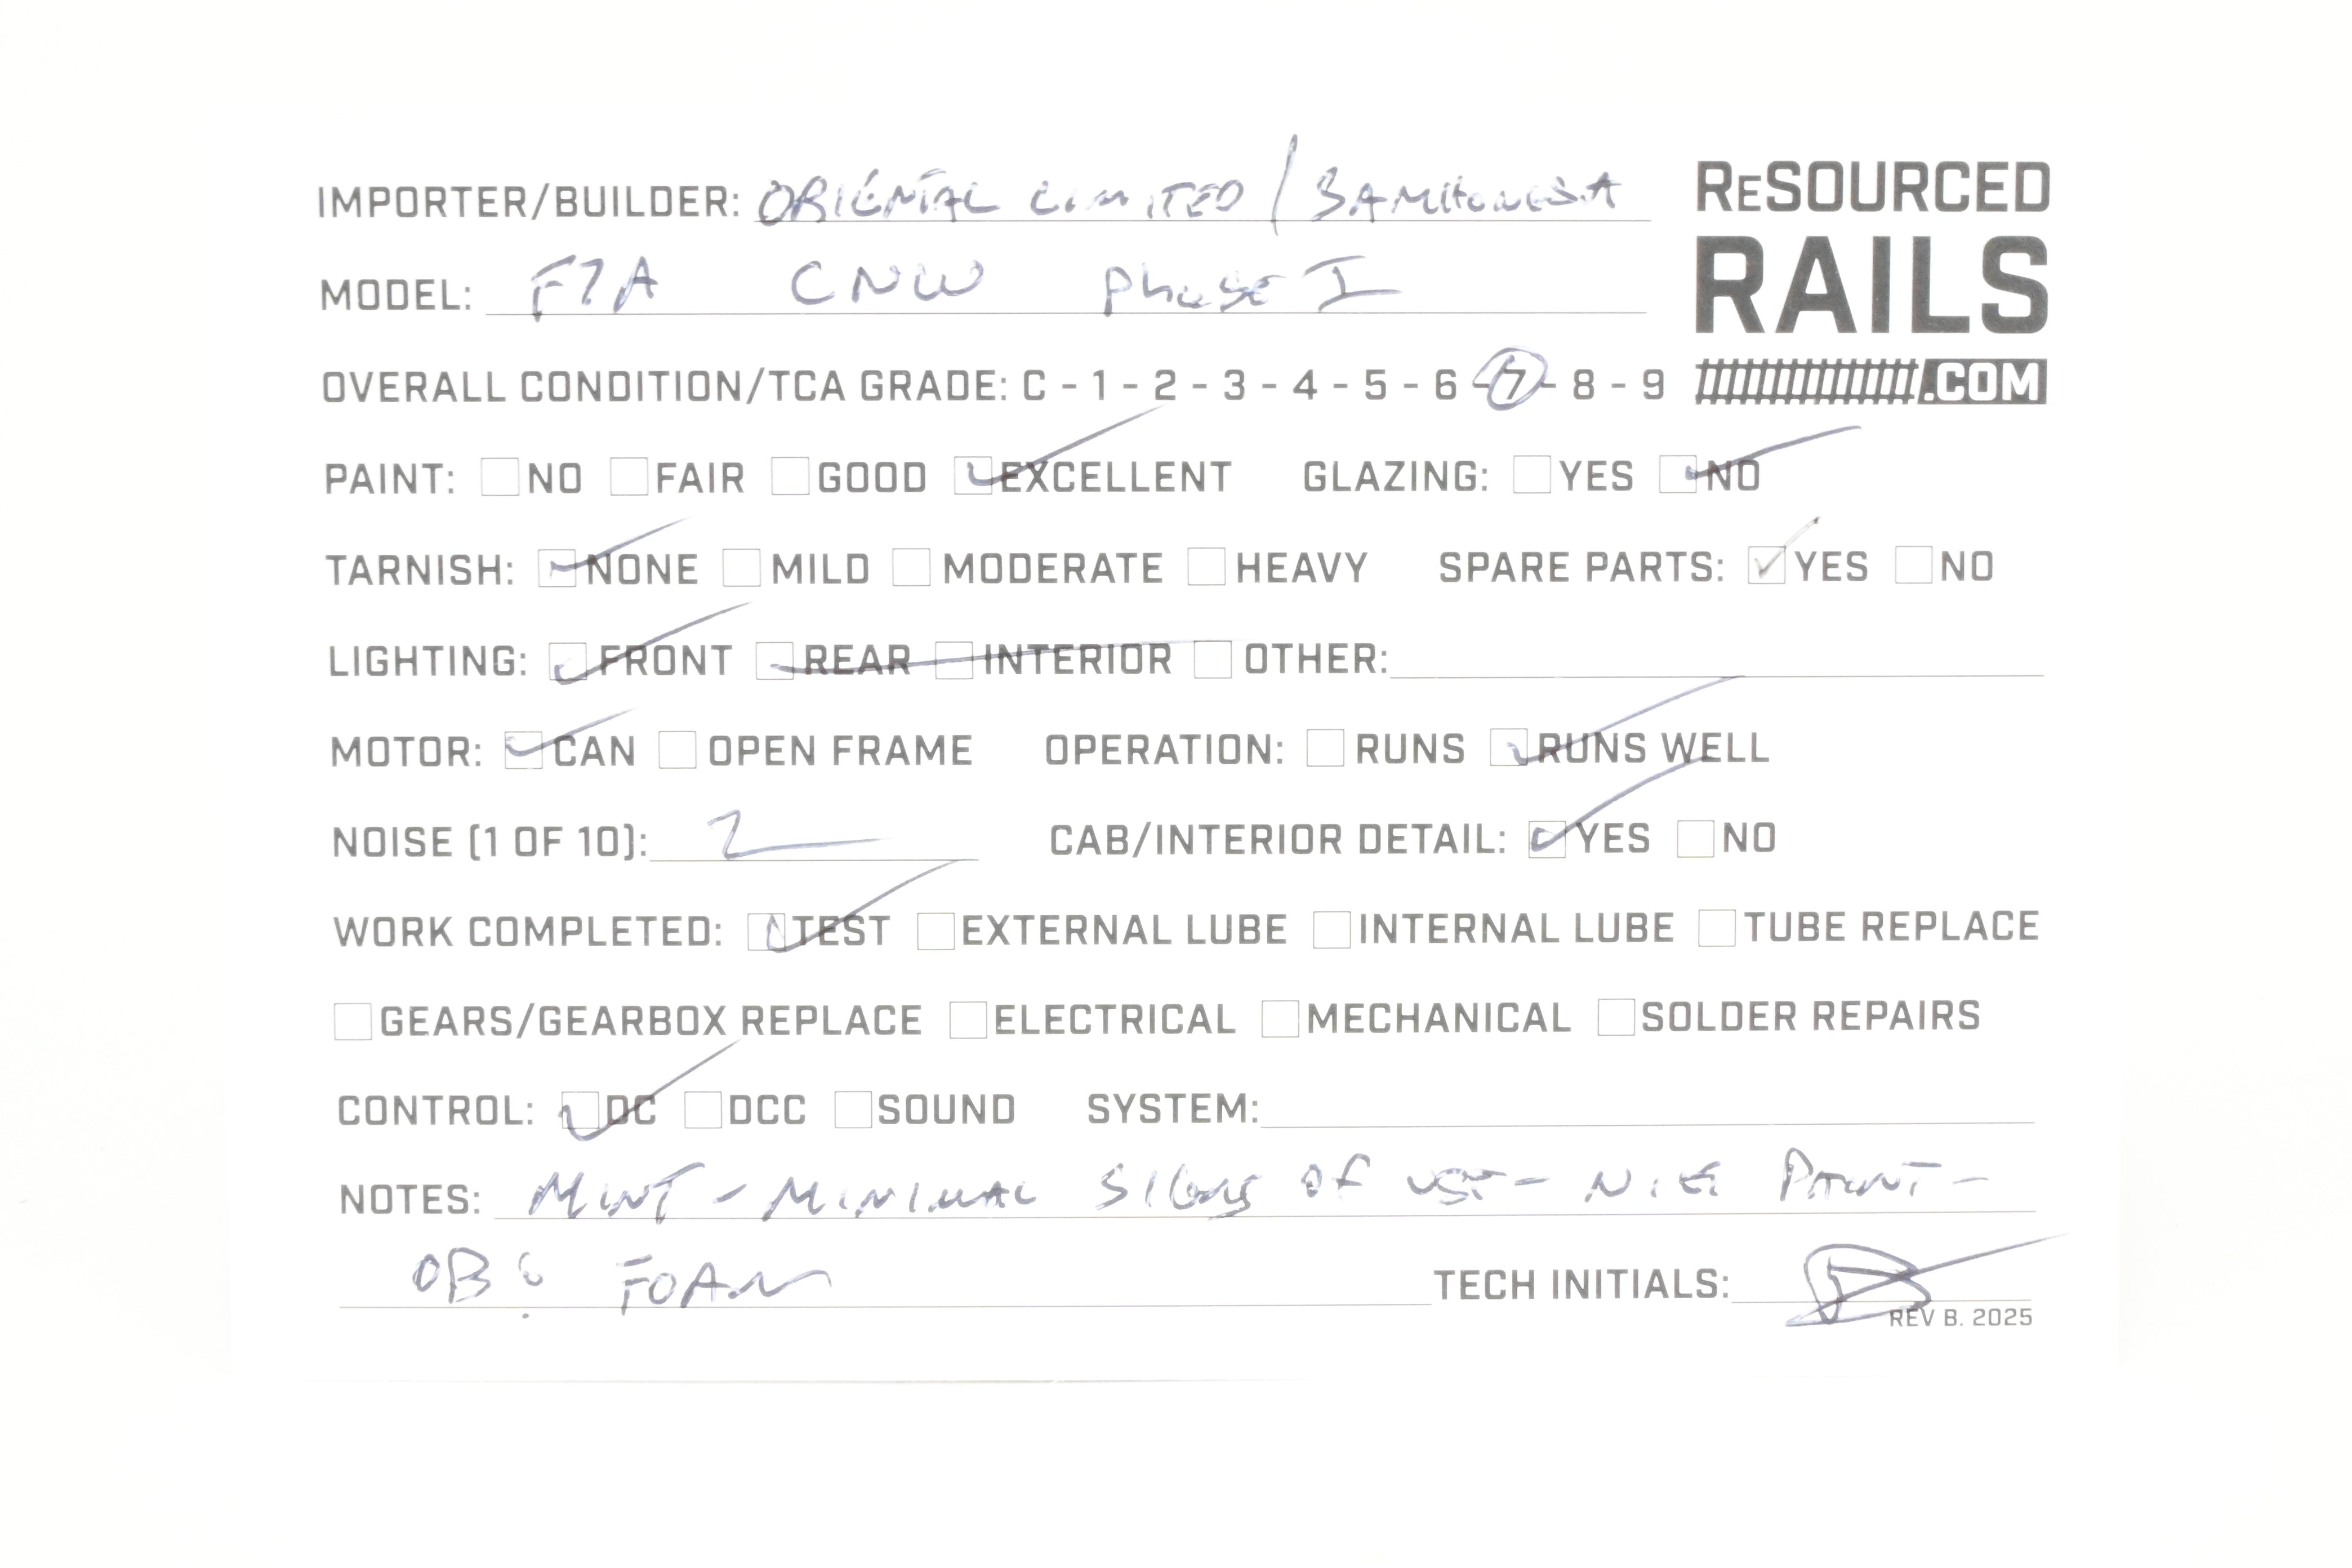 IMPORTER/BUILDER: ORIENTAL LIMITED / SAMHONGSA
MODEL: F7A CNW Phase I
RESOURCED
RAILS
.COM
OVERALL CONDITION/TCA GRADE: C - 1 - 2 - 3 - 4 - 5 - 6 - 7 - 8 - 9
PAINT: NO FAIR GOOD EXCELLENT GLAZING: YES NO
TARNISH: NONE MILD MODERATE HEAVY SPARE PARTS: YES NO
LIGHTING: FRONT REAR INTERIOR OTHER:
MOTOR: CAN OPEN FRAME OPERATION: RUNS RUNS WELL
NOISE (1 OF 10): 2 CAB/INTERIOR DETAIL: YES NO
WORK COMPLETED: TEST EXTERNAL LUBE INTERNAL LUBE TUBE REPLACE
GEARS/GEARBOX REPLACE ELECTRICAL MECHANICAL SOLDER REPAIRS
CONTROL: DC DCC SOUND SYSTEM:
NOTES: MINT - MINIMAL SIGNS OF USE - NICE PAINT -
OB & FOAM TECH INITIALS:
REV B. 2025